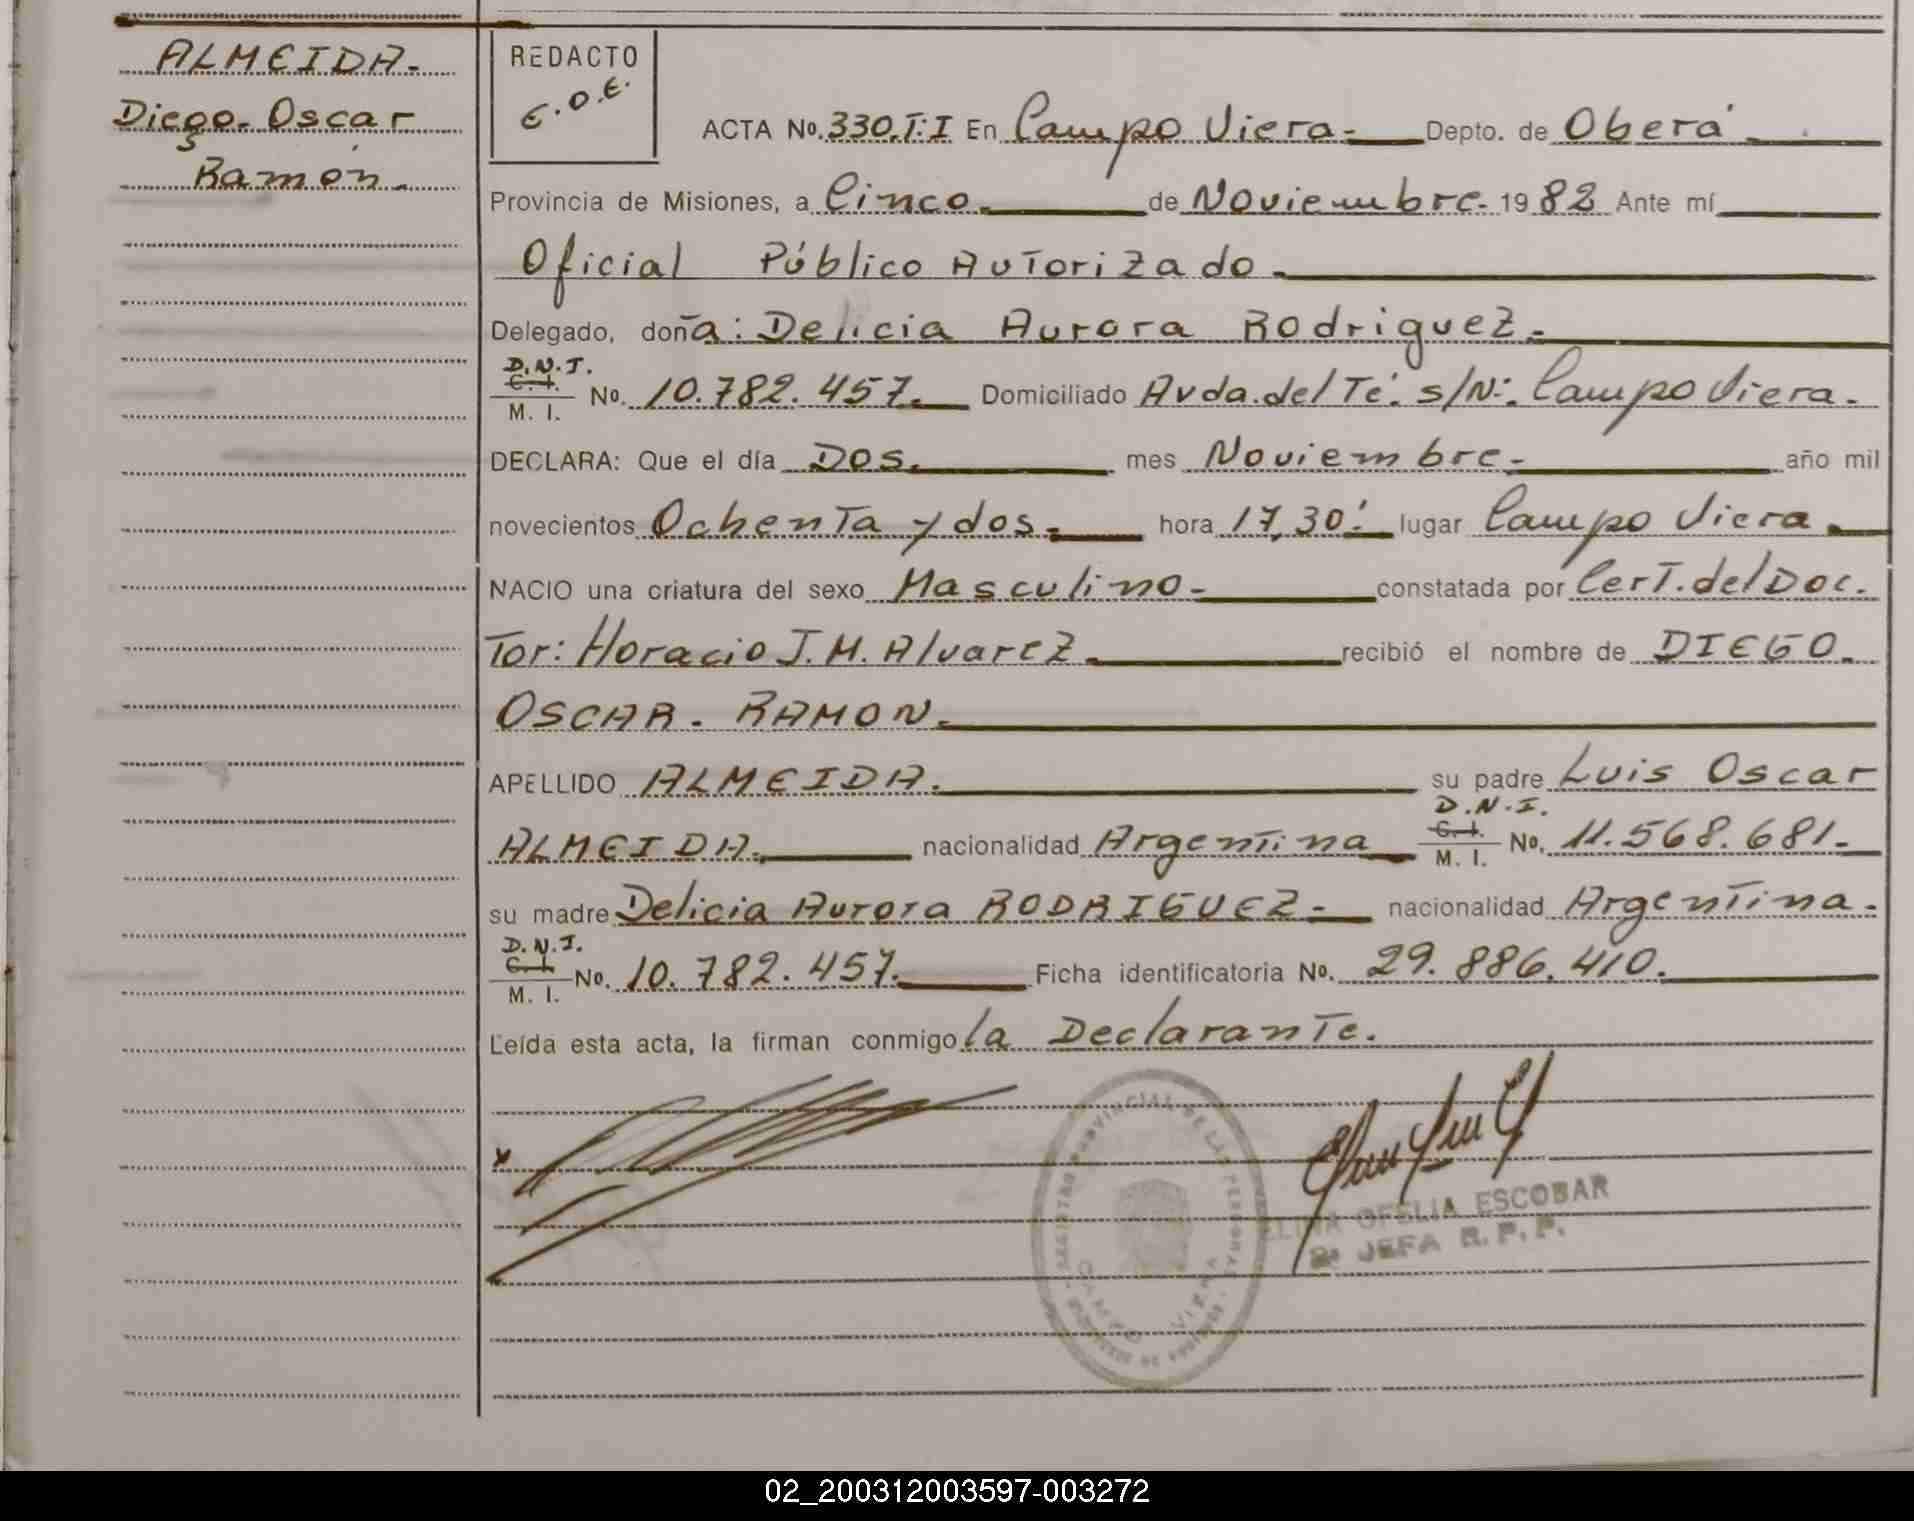 ALMEIDA.
Diego. Oscar
Ramón.
REDACTO
E.O.E.
ACTA No. 330.T:I En Campo Viera.- Depto. de Oberá
Provincia de Misiones, a Cinco. de Noviembre. 1982 Ante mí
Oficial Público Autorizado.
Delegado, doña: Delicia Aurora Rodriguez.
D.N.I.
C. I.
M. I. No. 10.782.457. Domiciliado Avda.del Té. s/N:. Campo Viera.
DECLARA: Que el día Dos. mes Noviembre.- año mil
novecientos Ochenta y dos. hora 17,30! lugar Campo Viera.
NACIO una criatura del sexo Masculino. constatada por Cert. del Doc.
tor: Horacio J. M. Alvarez. recibió el nombre de DIEGO.
OSCAR. RAMON.
APELLIDO ALMEIDA. su padre Luis Oscar
ALMEIDA. nacionalidad Argentina D.N.I. C. I. M. I. No. 11.568.681.
su madre Delicia Aurora RODRIGUEZ- nacionalidad Argentina.
D.N.I.
C. I.
M. I. No. 10.782.457. Ficha identificatoria No. 29.886.410.
Leída esta acta, la firman conmigo la Declarante.
x
REGISTRO PROVINCIAL DE LAS PERSONAS
CAMPO VIERA
ELINA OFELIA ESCOBAR
2ª JEFA R. P. P.
02_200312003597-003272